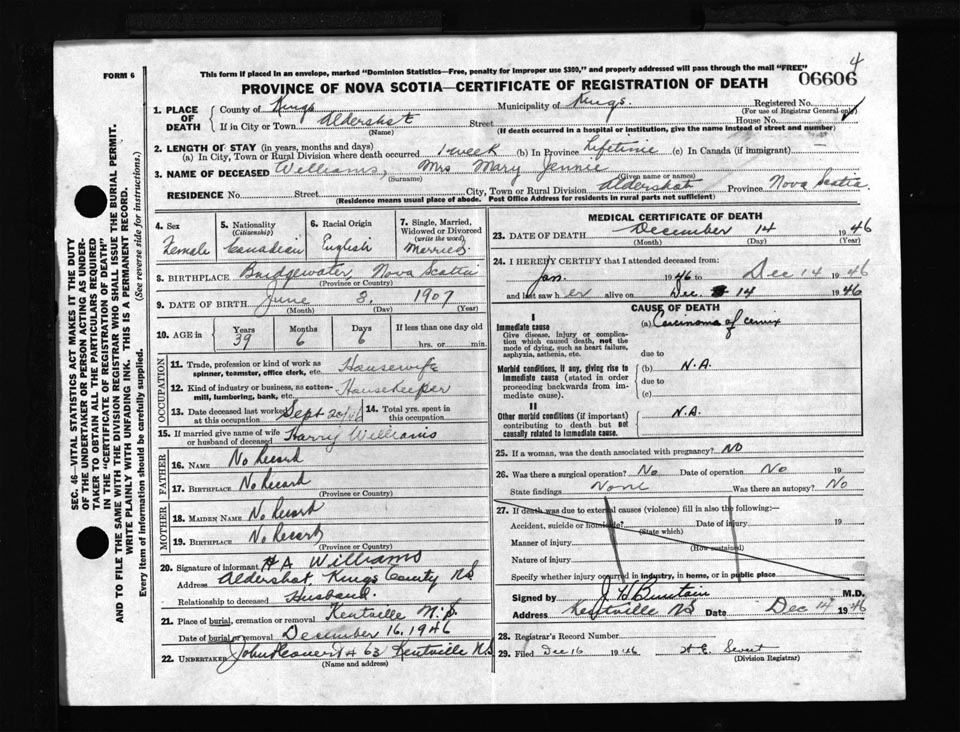 4
FORM 6
This form if placed in an envelope, marked "Dominion Statistics—Free, penalty for improper use $300," and properly addressed will pass through the mail "FREE"
06606
PROVINCE OF NOVA SCOTIA—CERTIFICATE OF REGISTRATION OF DEATH
1. PLACE OF DEATH
County of Kings Municipality of Kings. Registered No.
(For use of Registrar General only)
If in City or Town Aldershot Street House No.
(Name) (If death occurred in a hospital or institution, give the name instead of street and number)
2. LENGTH OF STAY (in years, months and days)
(a) In City, Town or Rural Division where death occurred 1 week (b) In Province Lifetime (c) In Canada (if immigrant)
3. NAME OF DECEASED Williams, Mrs Mary Jennie
(Surname) (Given name or names)
RESIDENCE No. Street City, Town or Rural Division Aldershot Province Nova Scotia
(Residence means usual place of abode. Post Office Address for residents in rural parts not sufficient)
4. Sex Female
5. Nationality (Citizenship) Canadian
6. Racial Origin English
7. Single, Married, Widowed or Divorced (write the word) Married
8. BIRTHPLACE Bridgewater Nova Scotia
(Province or Country)
9. DATE OF BIRTH June 8, 1907
(Month) (Day) (Year)
10. AGE in Years 39 Months 6 Days 6 If less than one day old hrs. or min.
OCCUPATION
11. Trade, profession or kind of work as spinner, teamster, office clerk, etc. Housewife
12. Kind of industry or business, as cotton-mill, lumbering, bank, etc. Housekeeper
13. Date deceased last worked at this occupation Sept 20/46
14. Total yrs. spent in this occupation
15. If married give name of wife or husband of deceased Harry Williams
FATHER
16. NAME No Record
17. BIRTHPLACE No Record
(Province or Country)
MOTHER
18. MAIDEN NAME No Record
19. BIRTHPLACE No Record
(Province or Country)
20. Signature of informant H A Williams
Address Aldershot, Kings County NS
Relationship to deceased Husband.
21. Place of burial, cremation or removal Kentville N.S.
Date of burial or removal December 16, 1946
22. UNDERTAKER 63 Kentville NS
(Name and address)
MEDICAL CERTIFICATE OF DEATH
23. DATE OF DEATH December 14 1946
(Month) (Day) (Year)
24. I HEREBY CERTIFY that I attended deceased from:
Jan. 1946 to Dec 14 1946
and last saw her alive on Dec. 14 1946
CAUSE OF DEATH
I
Immediate cause
Give disease, injury or complication which caused death, not the mode of dying, such as heart failure, asphyxia, asthenia, etc.
(a) Carcinoma of cervix
due to
Morbid conditions, if any, giving rise to immediate cause (stated in order proceeding backwards from immediate cause).
(b) N.A.
due to
(c)
II
Other morbid conditions (if important) contributing to death but not causally related to immediate cause.
N.A.
25. If a woman, was the death associated with pregnancy? NO
26. Was there a surgical operation? No Date of operation No 19
State findings None Was there an autopsy? No
27. If death was due to external causes (violence) fill in also the following:—
Accident, suicide or homicide? Date of injury 19
(State which)
Manner of injury
(How sustained)
Nature of injury
Specify whether injury occurred in industry, in home, or in public place
Signed by M.D.
Address Kentville NS Date Dec 14 1946
28. Registrar's Record Number
29. Filed Dec 16 1946
(Division Registrar)
SEC. 46—VITAL STATISTICS ACT MAKES IT THE DUTY
OF THE UNDERTAKER OR PERSON ACTING AS UNDER-
TAKER TO OBTAIN ALL THE PARTICULARS REQUIRED
IN THE "CERTIFICATE OF REGISTRATION OF DEATH"
AND TO FILE THE SAME WITH THE DIVISION REGISTRAR WHO SHALL ISSUE THE BURIAL PERMIT.
WRITE PLAINLY WITH UNFADING INK. THIS IS A PERMANENT RECORD.
Every item of Information should be carefully supplied. (See reverse side for instructions.)